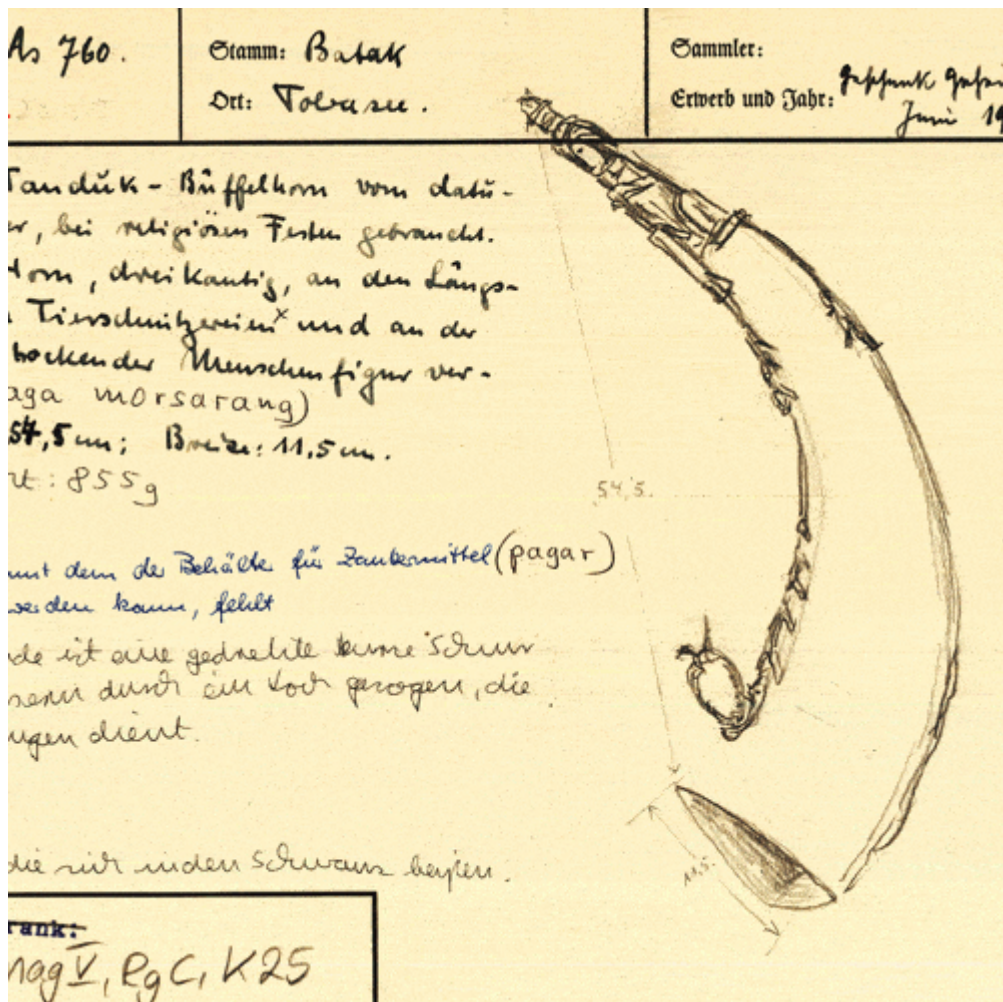 As 760.
Stamm: Batak
Ort: Tobasee.
Sammler:
Erwerb und Jahr: Geschenk
Juni 19
Tanduk - Büffelhorn vom datu-
er, bei religiösen Festen gebraucht.
Horn, dreikantig, an den Längs-
n Tierschnitzereien x und an der
hockender Menschenfigur ver-
aga morsarang)
54,5 cm; Breite: 11,5 cm.
ht: 855g
mit dem der Behälter für Zaubermittel (pagar)
werden kann, fehlt
de ist eine gedrehte kurze Schnur
sern durch ein Loch gezogen, die
ngen dient.
54,5.
11,5.
die sich in den Schwanz beißen.
rank:
mag V, Rg C, K25